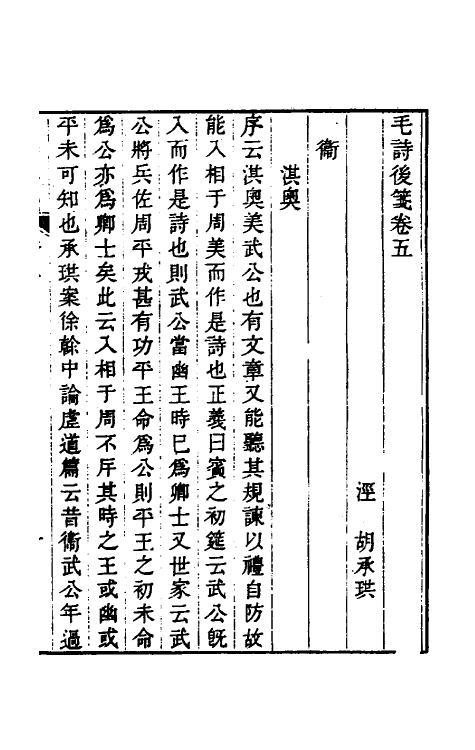 毛詩後箋卷五
涇　胡承珙
衞
淇奧
序云淇奧美武公也有文章又能聽其規諫以禮自防故
能入相于周美而作是詩也正義曰賓之初筵云武公旣
入而作是詩也則武公當幽王時已爲卿士又世家云武
公將兵佐周平戎甚有功平王命爲公則平王之初未命
爲公亦爲卿士矣此云入相于周不斥其時之王或幽或
平未可知也承珙案徐榦中論虛道篇云昔衞武公年過